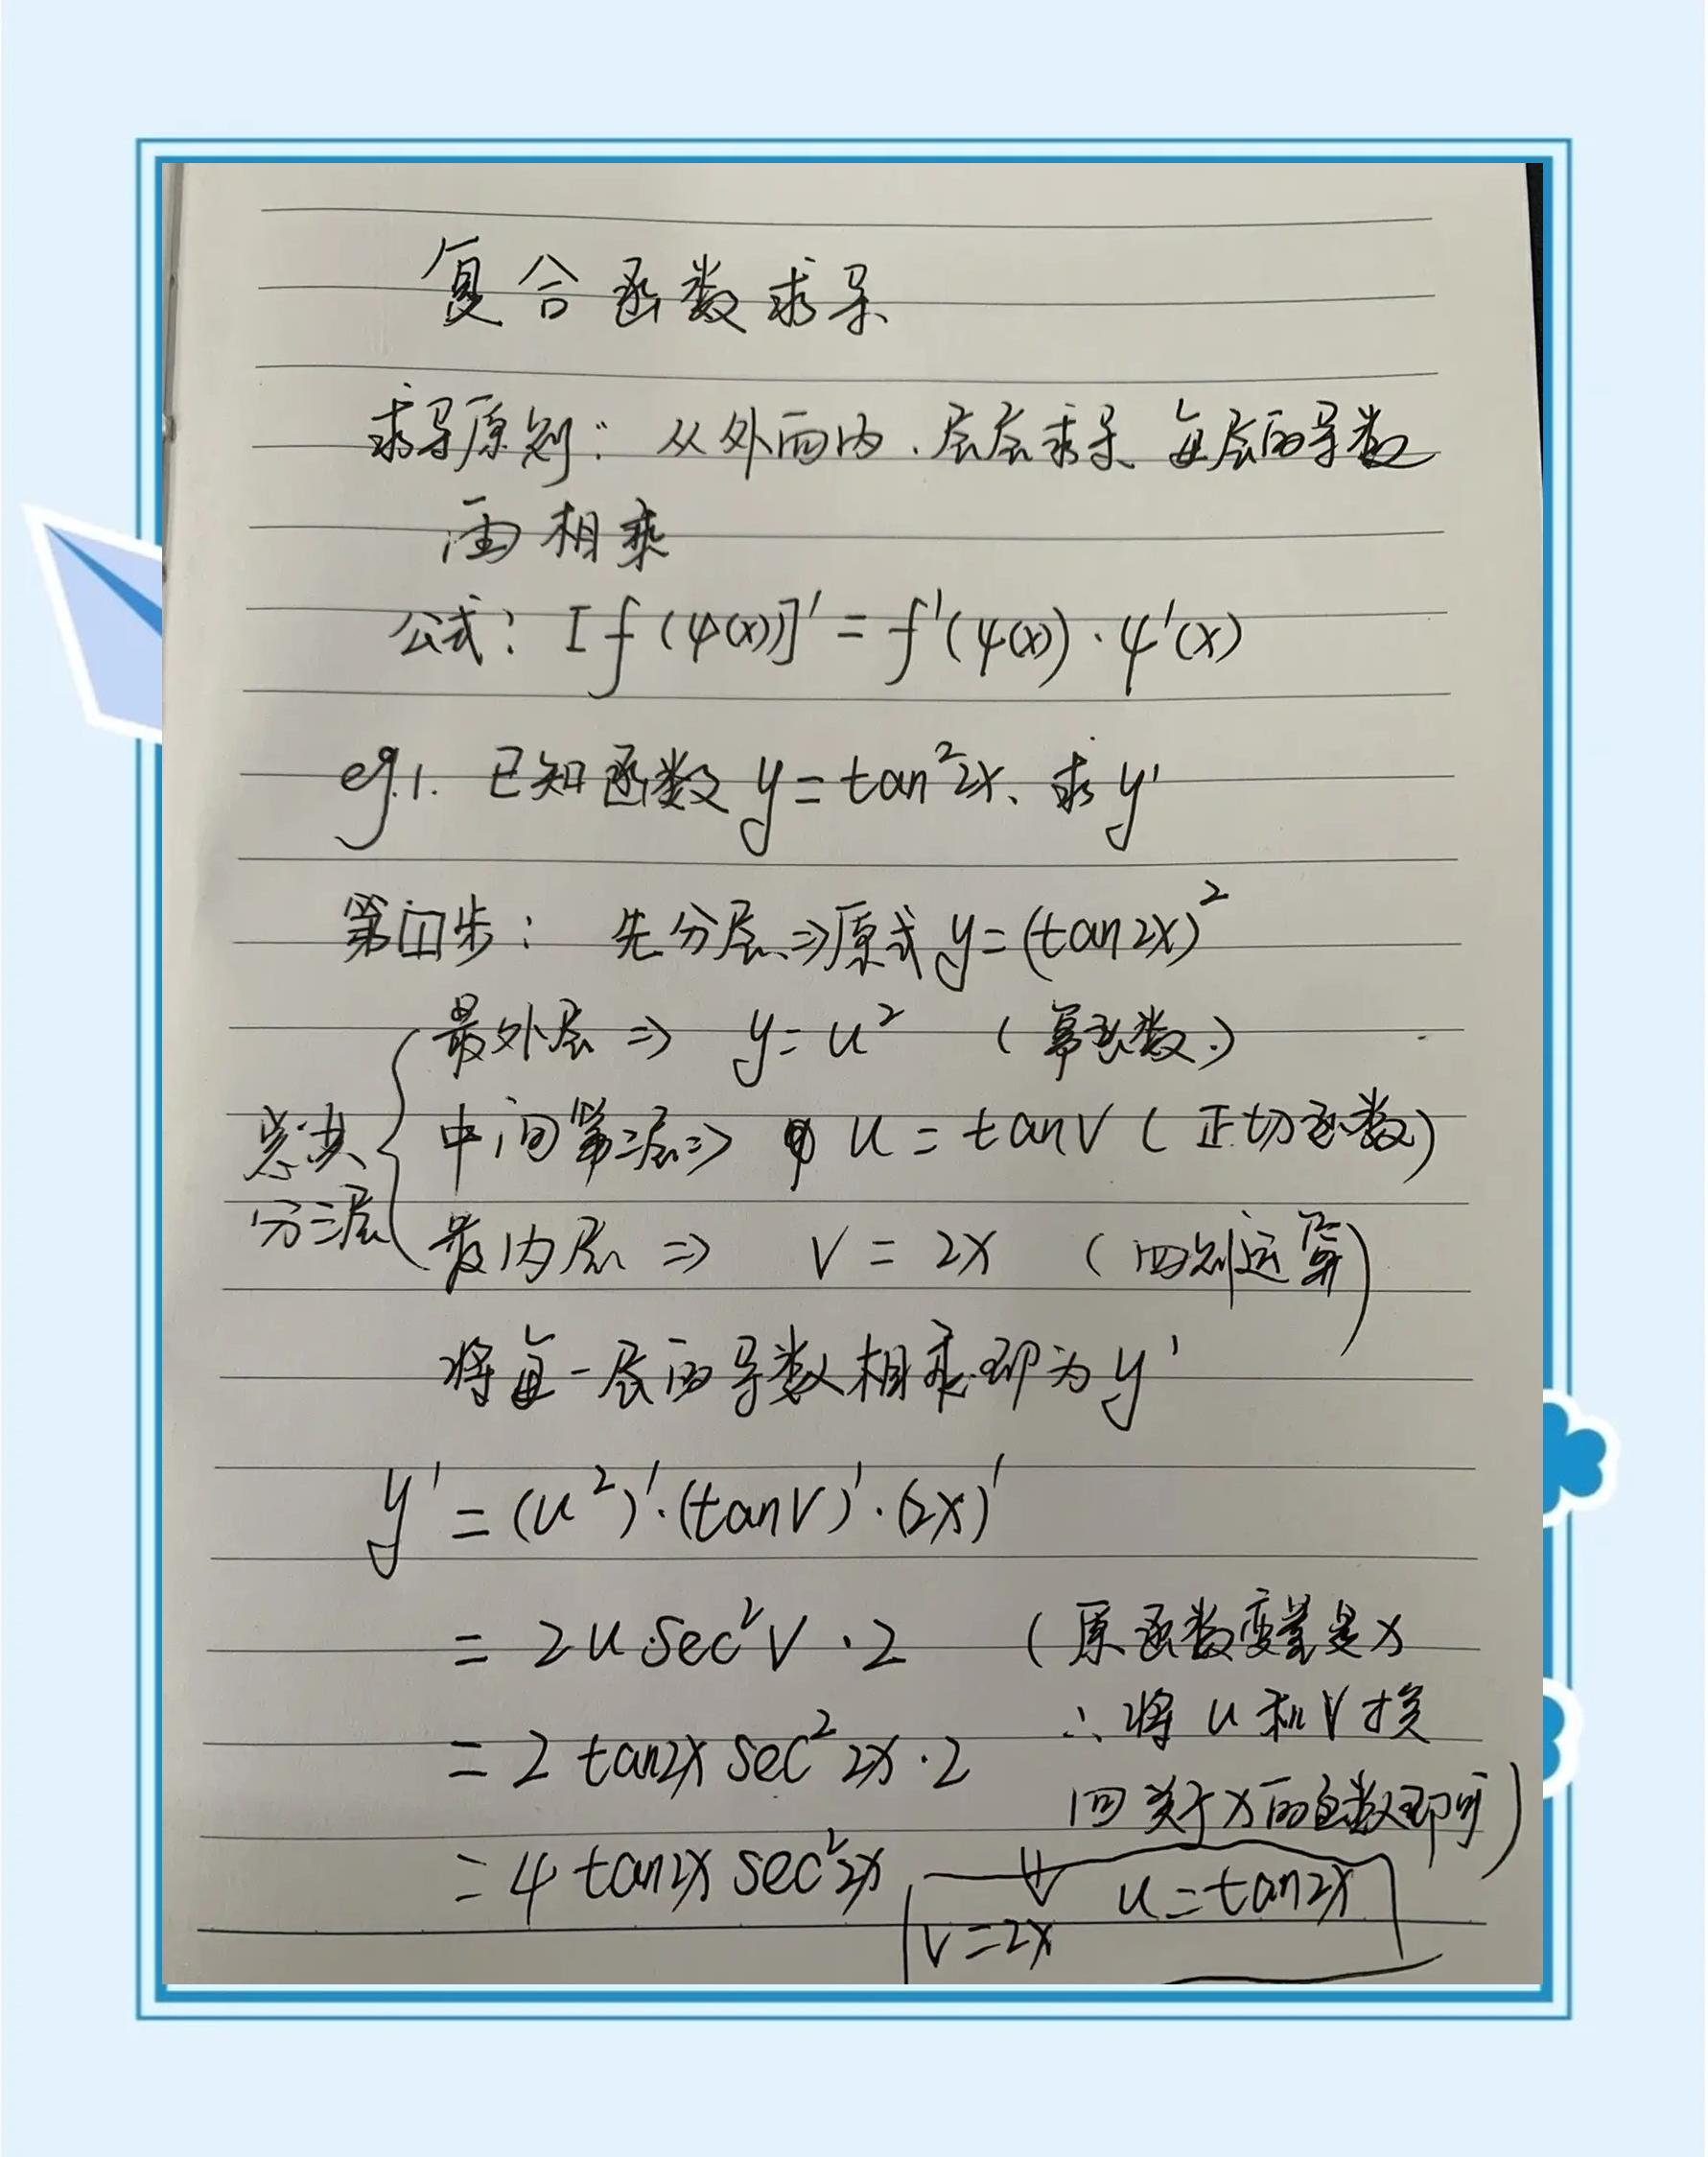 复合函数求导
求导原则：从外而内、层层求导、每层的导数
再相乘
公式：[f(ψ(x))]' = f'(ψ(x))·ψ'(x)
eg.1. 已知函数 y = tan²2x、求 y'
第①步： 先分层 ⇒ 原式 y = (tan2x)²
总共
分三层
最外层 ⇒ y = u² (幂函数)
中间第二层 ⇒ u = tanV (正切函数)
最内层 ⇒ V = 2x (四则运算)
将每一层的导数相乘即为 y'
y' = (u²)'·(tanV)'·(2x)'
= 2u·sec²V·2 (原函数变量是x
= 2tan2x sec²2x·2 ∴将u和V换
回关于x的函数即可)
= 4tan2x sec²2x
V = 2x u = tan2x